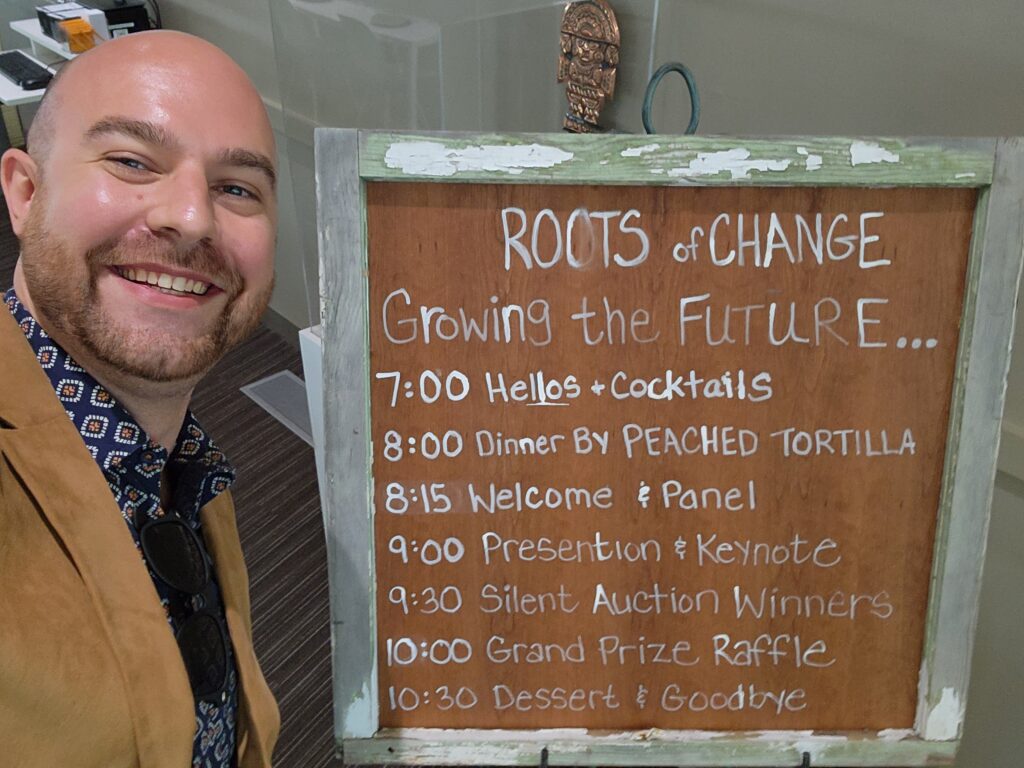 ROOTS of CHANGE
Growing the FUTURE...
7:00 Hellos + Cocktails
8:00 Dinner By PEACHED TORTILLA
8:15 Welcome & Panel
9:00 Presention & Keynote
9:30 Silent Auction Winners
10:00 Grand Prize Raffle
10:30 Dessert & Goodbye